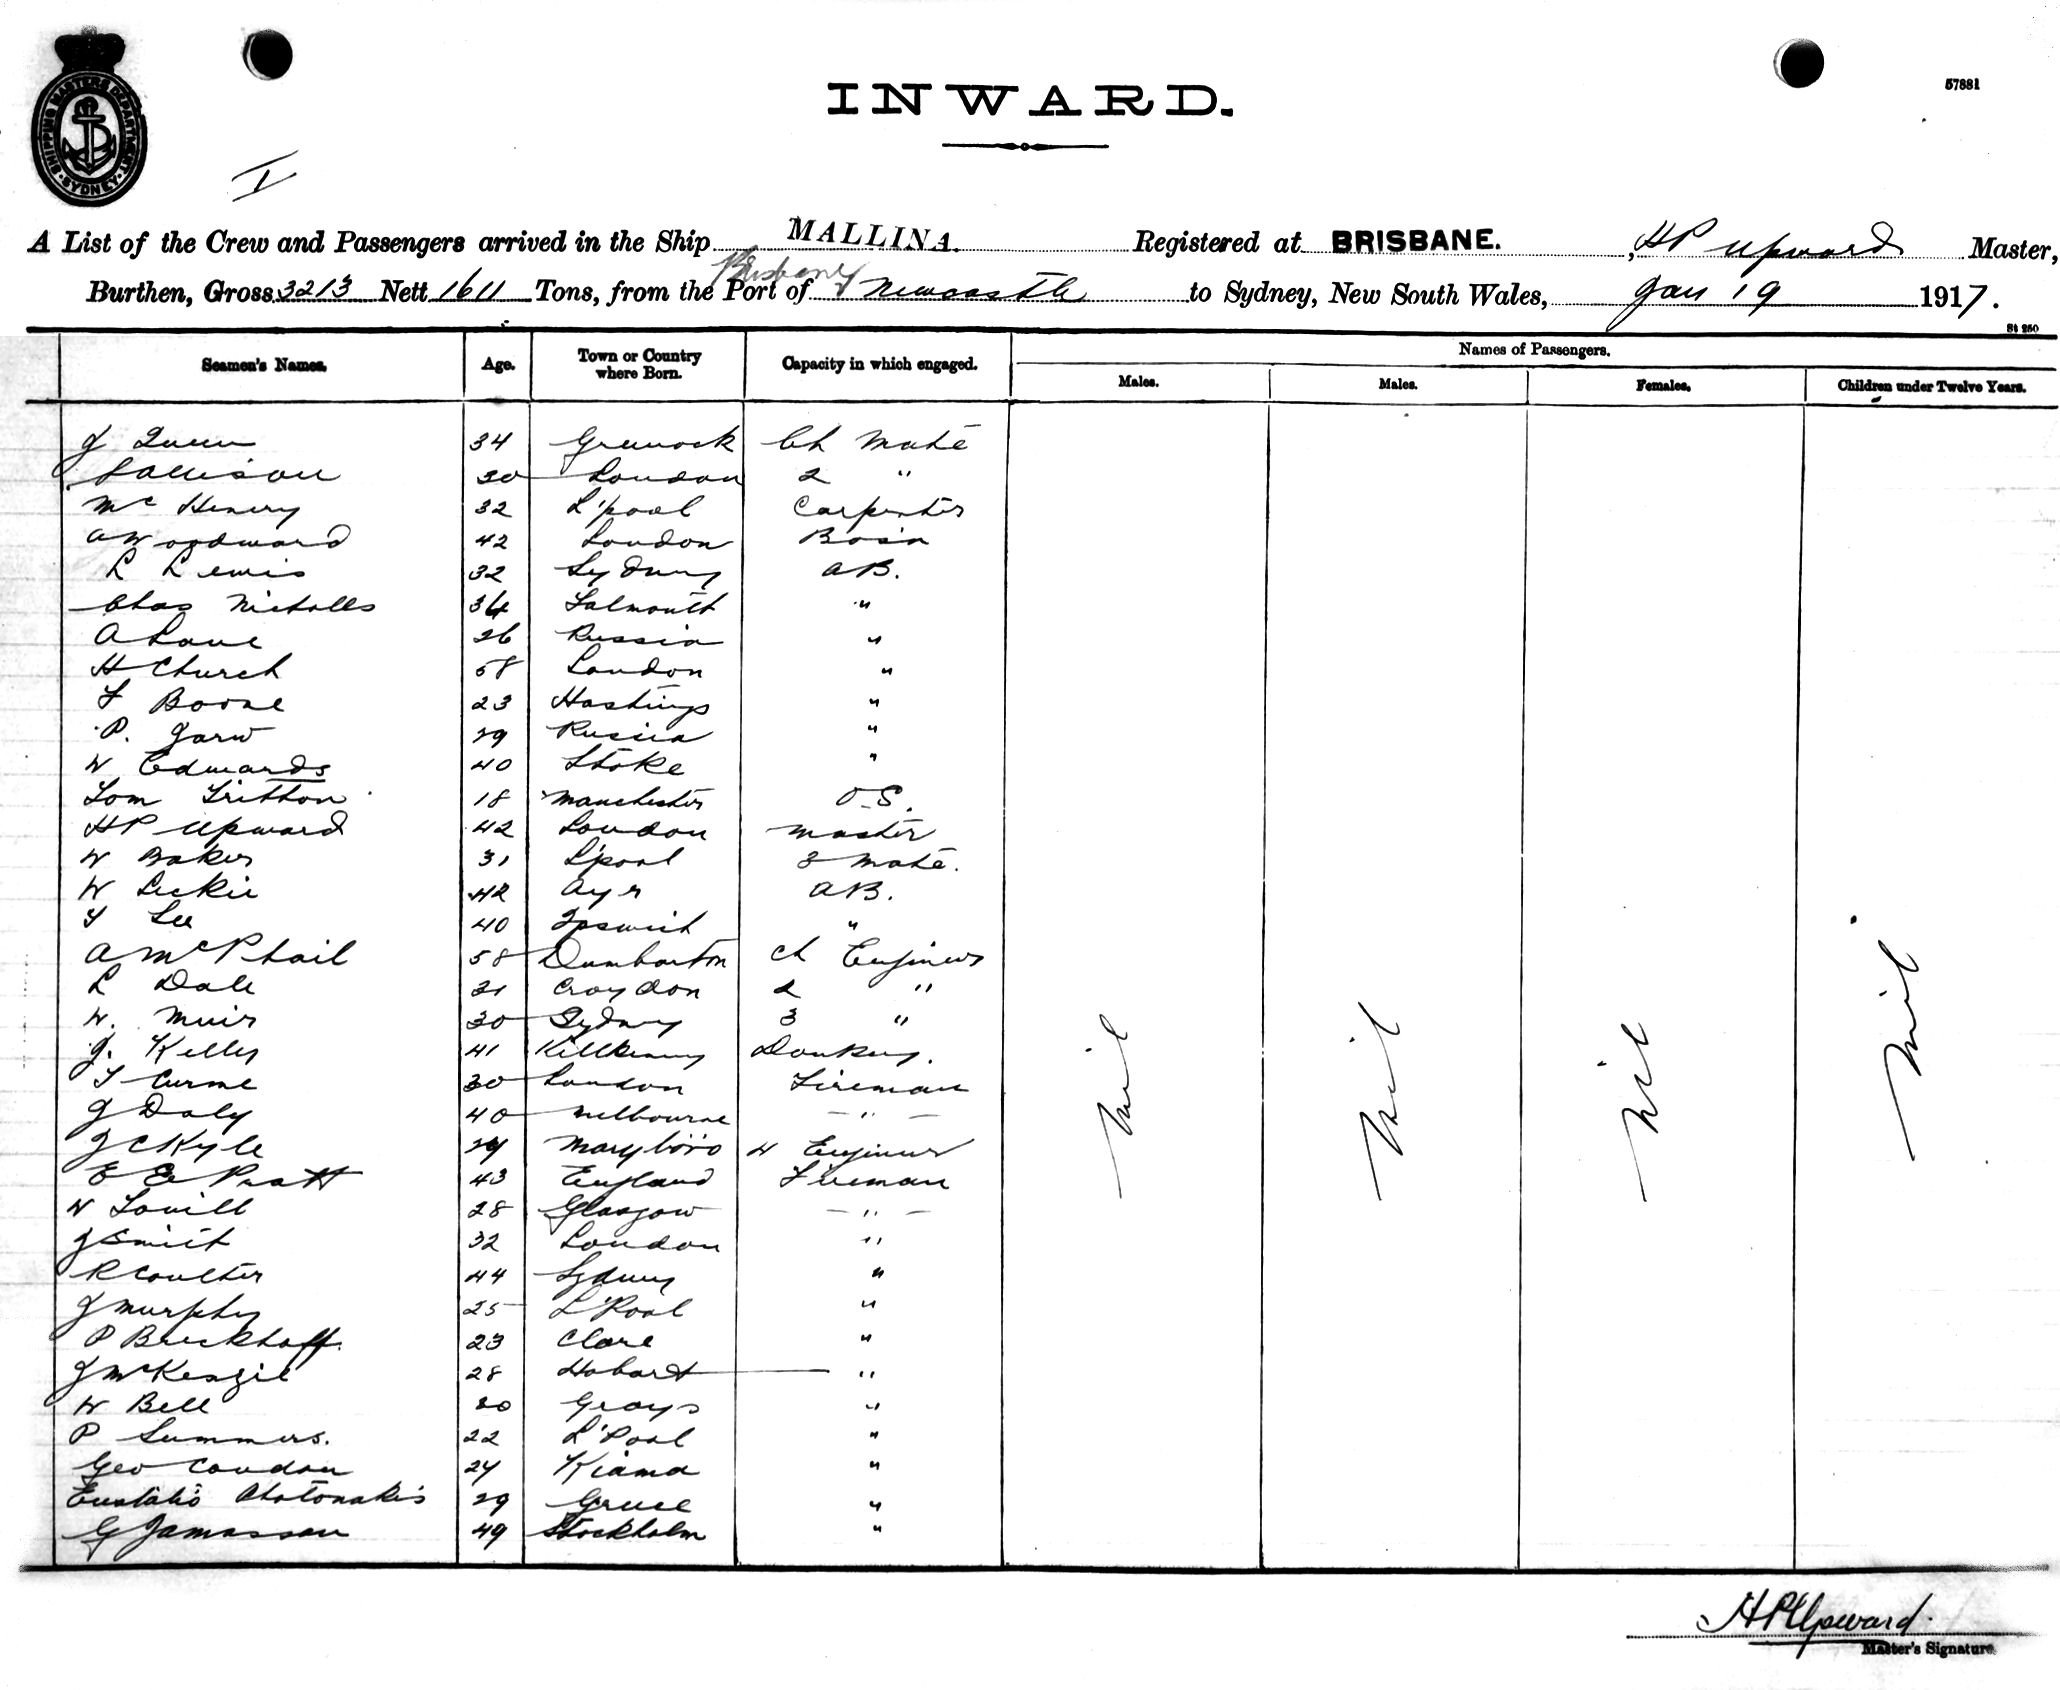 SHIPPING MASTERS DEPARTMENT
SYDNEY
57881
INWARD.
I
A List of the Crew and Passengers arrived in the Ship MALLINA. Registered at BRISBANE. , HP Upward Master,
Burthen, Gross 3213 Nett 1611 Tons, from the Port of Brisbane & Newcastle to Sydney, New South Wales, Jan 19 1917.
St 250
Seamen's Names. Age. Town or Country where Born. Capacity in which engaged. Names of Passengers.
Males. Males. Females. Children under Twelve Years.
J Queen 34 Greenock Ch Mate
30 London 2 "
Mc Henery 32 L'pool Carpenter
A Woodward 42 London Bosn
L Lewis 32 Sydney AB.
Chas Nicholls 34 Falmouth "
A Lane 26 Russia "
H Church 58 London "
F Boorne 23 Hastings "
P. 29 Russia "
W Edwards 40 Stoke "
Tom Tritton 18 Manchester O.S.
HP Upward 42 London Master
W Baker 31 L'pool 3 Mate.
W Leckie 42 Ayr AB.
T Lee 40 Ipswich "
A McPhail 58 Dumbarton Ch Engineer
L Dale 31 Croydon 2 "
W. Muir 30 Sydney 3 "
J. Kelly 41 Killkenny Donkey.
T Curme 30 London Fireman
J Daly 40 Melbourne - " -
J C Kyle 29 Maryboro 4 Engineer
E E Pratt 43 England Fireman
W Lovill 28 Glasgow - " -
J Smith 32 London "
R Coulter 44 Sydney "
J Murphy 25 L'Pool "
P Breckhoff. 23 Clare "
J McKenzie 28 Hobart "
W Bell 20 Grays "
P Summers. 22 L'Pool "
Geo Condon 24 Kiama "
29 Greece "
G Jamasson 49 Stockholm "
Nil Nil Nil Nil
HP Upward.
Master's Signature